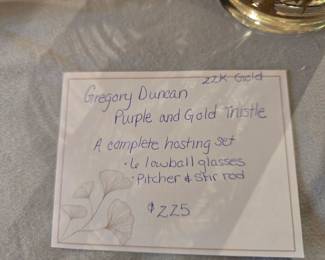 22K Gold
Gregory Duncan
Purple and Gold Thistle
A complete hosting set
• 6 lowball glasses
• Pitcher & stir rod
$225